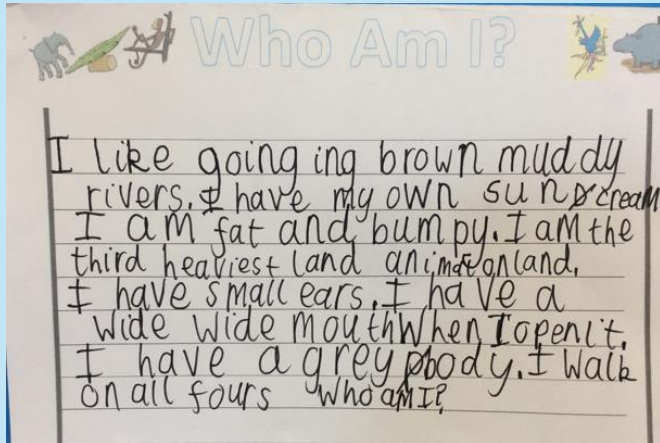 Who Am I?
I like going ing brown muddy
rivers. I have my own sunscream
I am fat and bumpy. I am the
third heaviest land animal on land.
I have small ears. I have a
wide wide mouth When I open it.
I have a grey body. I walk
on all fours Who am I?